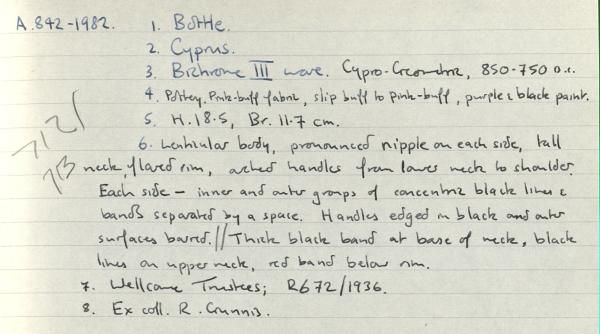 A.842-1982. 1. Bottle.
2. Cyprus.
3. Bichrome III ware. Cypro-Geometric, 850-750 B.C.
4. Pottery. Pink-buff fabric, slip buff to pink-buff, purple & black paint.
5. H. 18.5, Br. 11.7 cm.
6. Lenticular body, pronounced nipple on each side, tall
neck, flared rim, arched handles from lower neck to shoulder.
Each side - inner and outer groups of concentric black lines &
bands separated by a space. Handles edged in black and outer
surfaces barred. // Thick black band at base of neck, black
lines on upper neck, red band below rim.
7. Wellcome Trustees; R672/1936.
8. Ex coll. R. Gunnis.